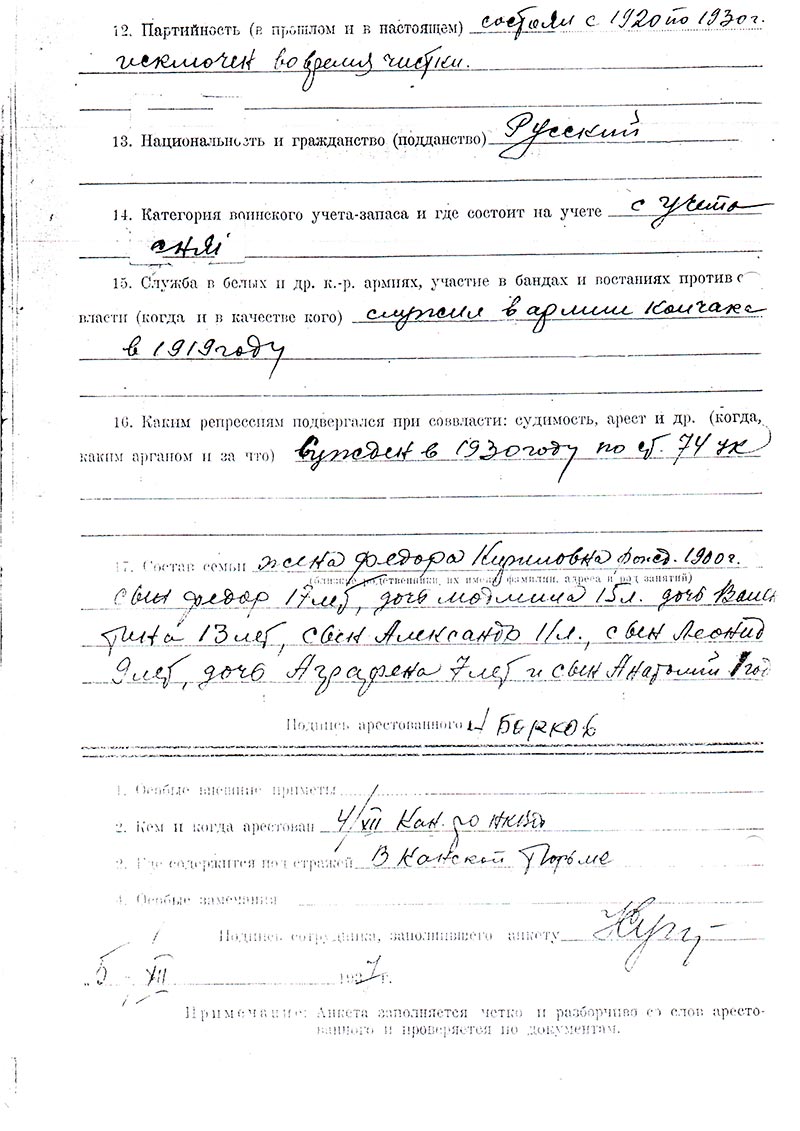 12. Партийность (в прошлом и в настоящем) состоял с 1920 по 1930 г.
исключен во время чистки.
13. Национальность и гражданство (подданство) Русский
14. Категория воинского учета-запаса и где состоит на учете с учета
снят
15. Служба в белых и др. к.-р. армиях, участие в бандах и востаниях против с
власти (когда и в качестве кого) служил в армии Колчака
в 1919 году
16. Каким репрессиям подвергался при соввласти: судимость, арест и др. (когда,
каким арганом и за что) сужден в 1930 году по ст. 74 ук
17. Состав семьи жена Федора Кириловна рожд. 1900 г.
(близкие родственники, их имена, фамилии, адреса и род занятий)
сын Федор 17 лет, дочь 15 л. дочь Вален
тина 13 лет, сын Александр 11 л., сын Леонид
9 лет, дочь Аграфена 7 лет и сын Анатолий 1 год
Подпись арестованного Берков
1. Особые внешние приметы
2. Кем и когда арестован 4/XII Кан. ро нквд
3. Где содержится под стражей В Канской тюрьме
4. Особые замечания
Подпись сотрудника, заполнившего анкету
„5 XII 1937 г.
Примечание: Анкета заполняется четко и разборчиво со слов аресто-
ванного и проверяется по документам.